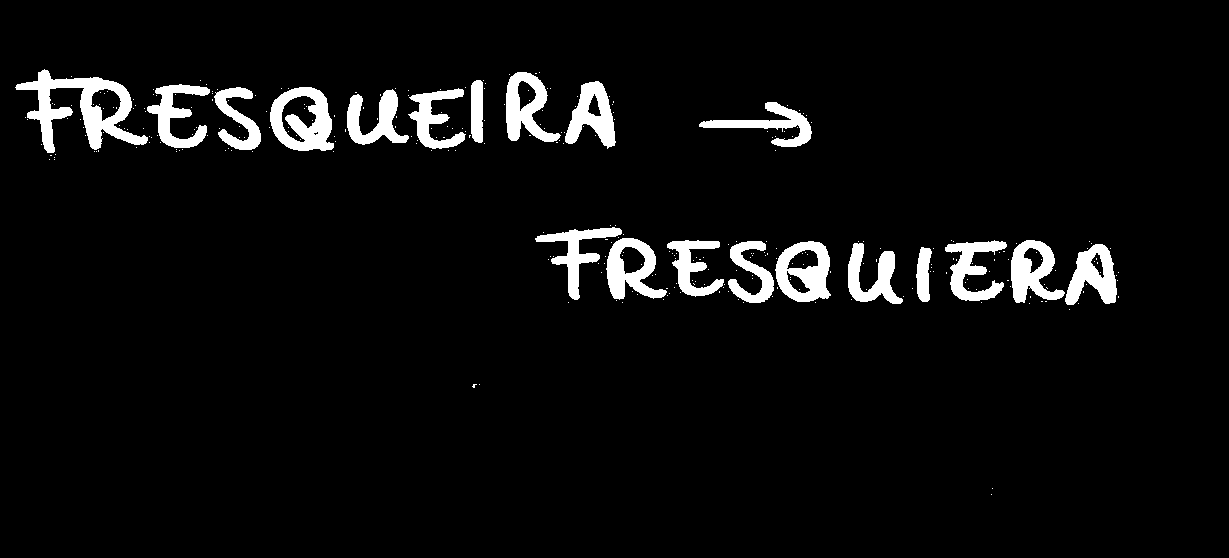 FRESQUEIRA →
FRESQUIERA